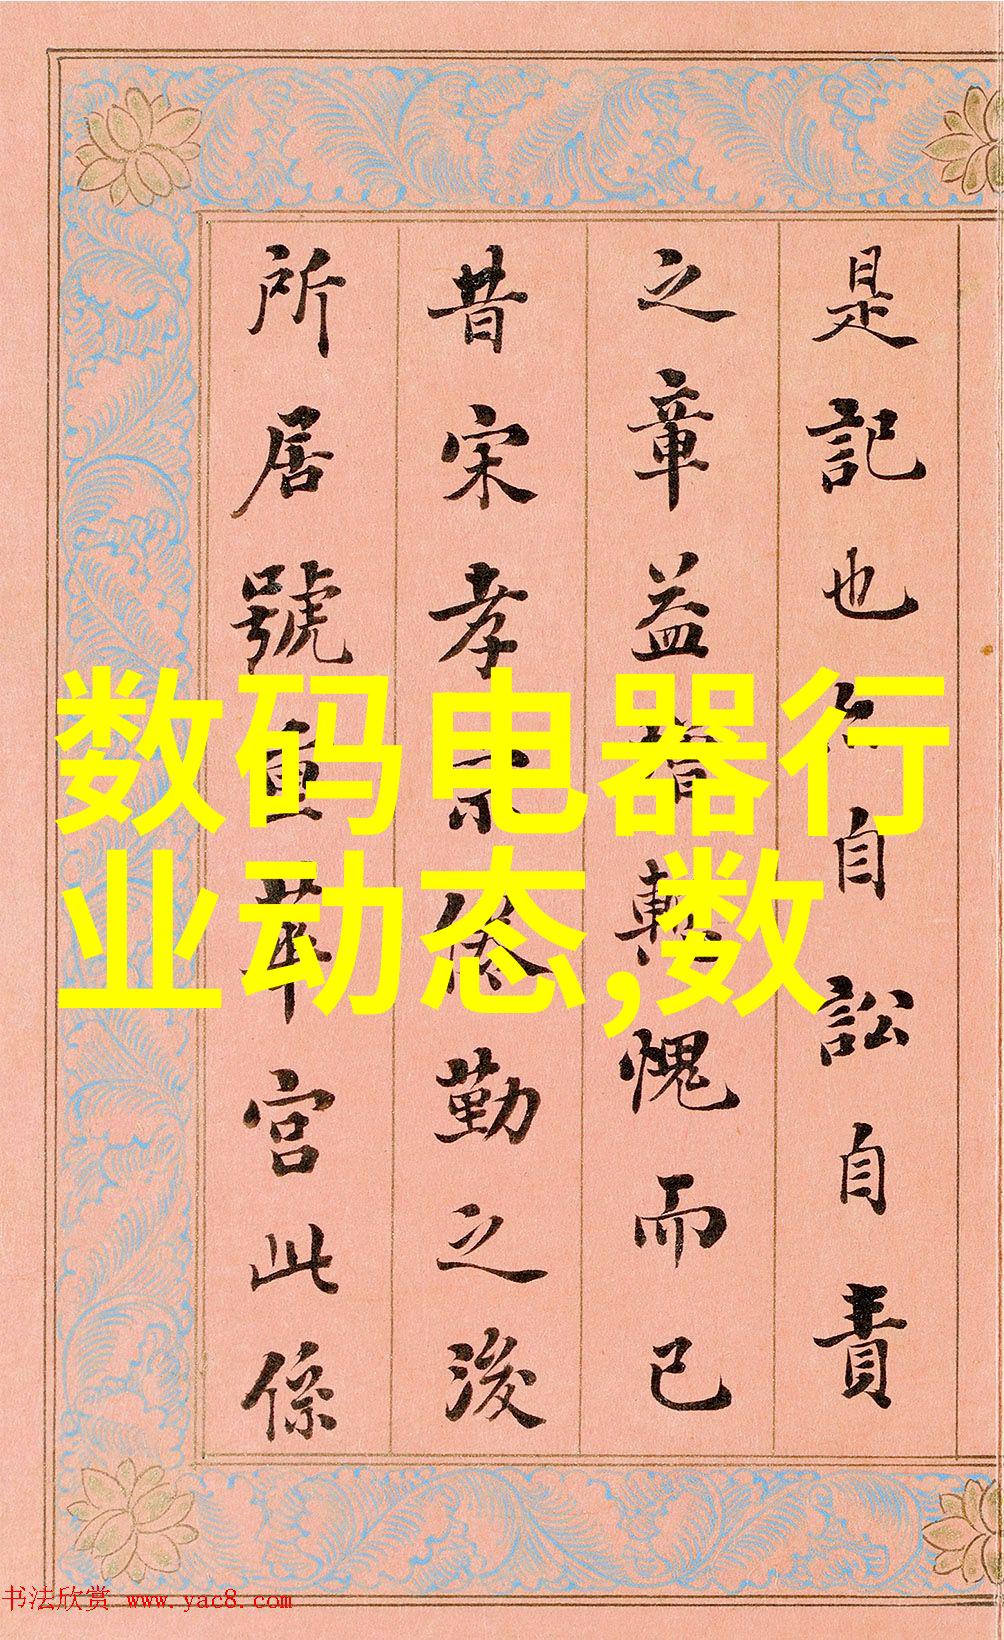 是記也作自訟自責
之章益增慙愧而已
昔宋孝宗倦勤之後
所居號重華宮此係
数码电器行
业动态,数
书法欣赏 www.yac8.com